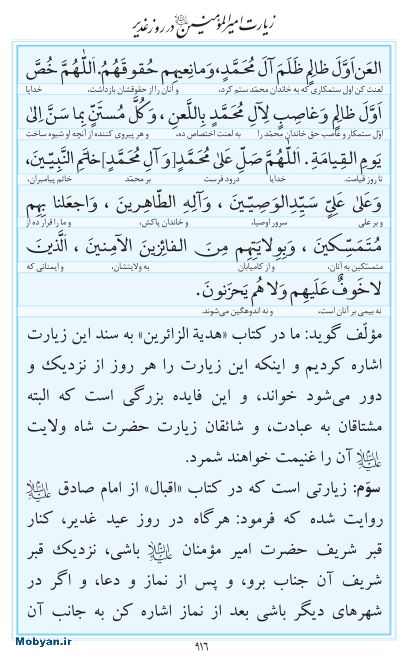 زیارت امیرالمؤمنین علیه‌السلام در روز غدیر
العَن اَوَّلَ ظالِمٍ ظَلَمَ آلَ مُحَمَّدٍ، وَمانِعیهِم حُقوقَهُم. اَللّٰهُمَّ خُصَّ
لعنت کن اول ستمکاری که به خاندان محمّد ستم کرد، و آنان را از حقوقشان بازداشت، خدایا
اَوَّلَ ظالِمٍ وَغاصِبٍ لِآلِ مُحَمَّدٍ بِاللَّعنِ، وَکُلَّ مُستَنٍّ بِما سَنَّ اِلیٰ
اوّل ستمکار و غاصب حق خاندان محمّد را به لعنت اختصاص ده، و هر پیروی کننده از آنچه او شیوه ساخت
یَومِ القِیامَةِ. اَللّٰهُمَّ صَلِّ عَلیٰ مُحَمَّدٍ [وَ آلِ مُحَمَّدٍ] خاتَمِ النَّبِیّینَ،
تا روز قیامت. خدایا درود فرست بر محمّد خاتم پیامبران،
وَعَلیٰ عَلِیٍّ سَیِّدِ الوَصِیّینَ، وَآلِهِ الطّاهِرینَ، وَاجعَلنا بِهِم
و بر علی سرور اوصیا، و خاندان پاکش، و ما را قرار ده از
مُتَمَسِّکینَ، وَبِوِلایَتِهِم مِنَ الفائِزینَ الآمِنینَ، اَلَّذینَ
متمسکین به آنان، و از کامیابان به ولایتشان، و ایمنانی که
لاخَوفٌ عَلَیهِم وَلا هُم یَحزَنونَ.
نه بیمی بر آنان است، و نه اندوهگین می‌شوند.
مؤلّف گوید: ما در کتاب «هدیة الزائرین» به سند این زیارت
اشاره کردیم و اینکه این زیارت را هر روز از نزدیک و
دور می‌شود خواند، و این فایده بزرگی است که البته
مشتاقان به عبادت، و شائقان زیارت حضرت شاه ولایت
علیه‌السلام آن را غنیمت خواهند شمرد.
سوّم: زیارتی است که در کتاب «اقبال» از امام صادق علیه‌السلام
روایت شده که فرمود: هرگاه در روز عید غدیر، کنار
قبر شریف حضرت امیر مؤمنان علیه‌السلام باشی، نزدیک قبر
شریف آن جناب برو، و پس از نماز و دعا، و اگر در
شهرهای دیگر باشی بعد از نماز اشاره کن به جانب آن
۹۱۶
Mobyan.ir